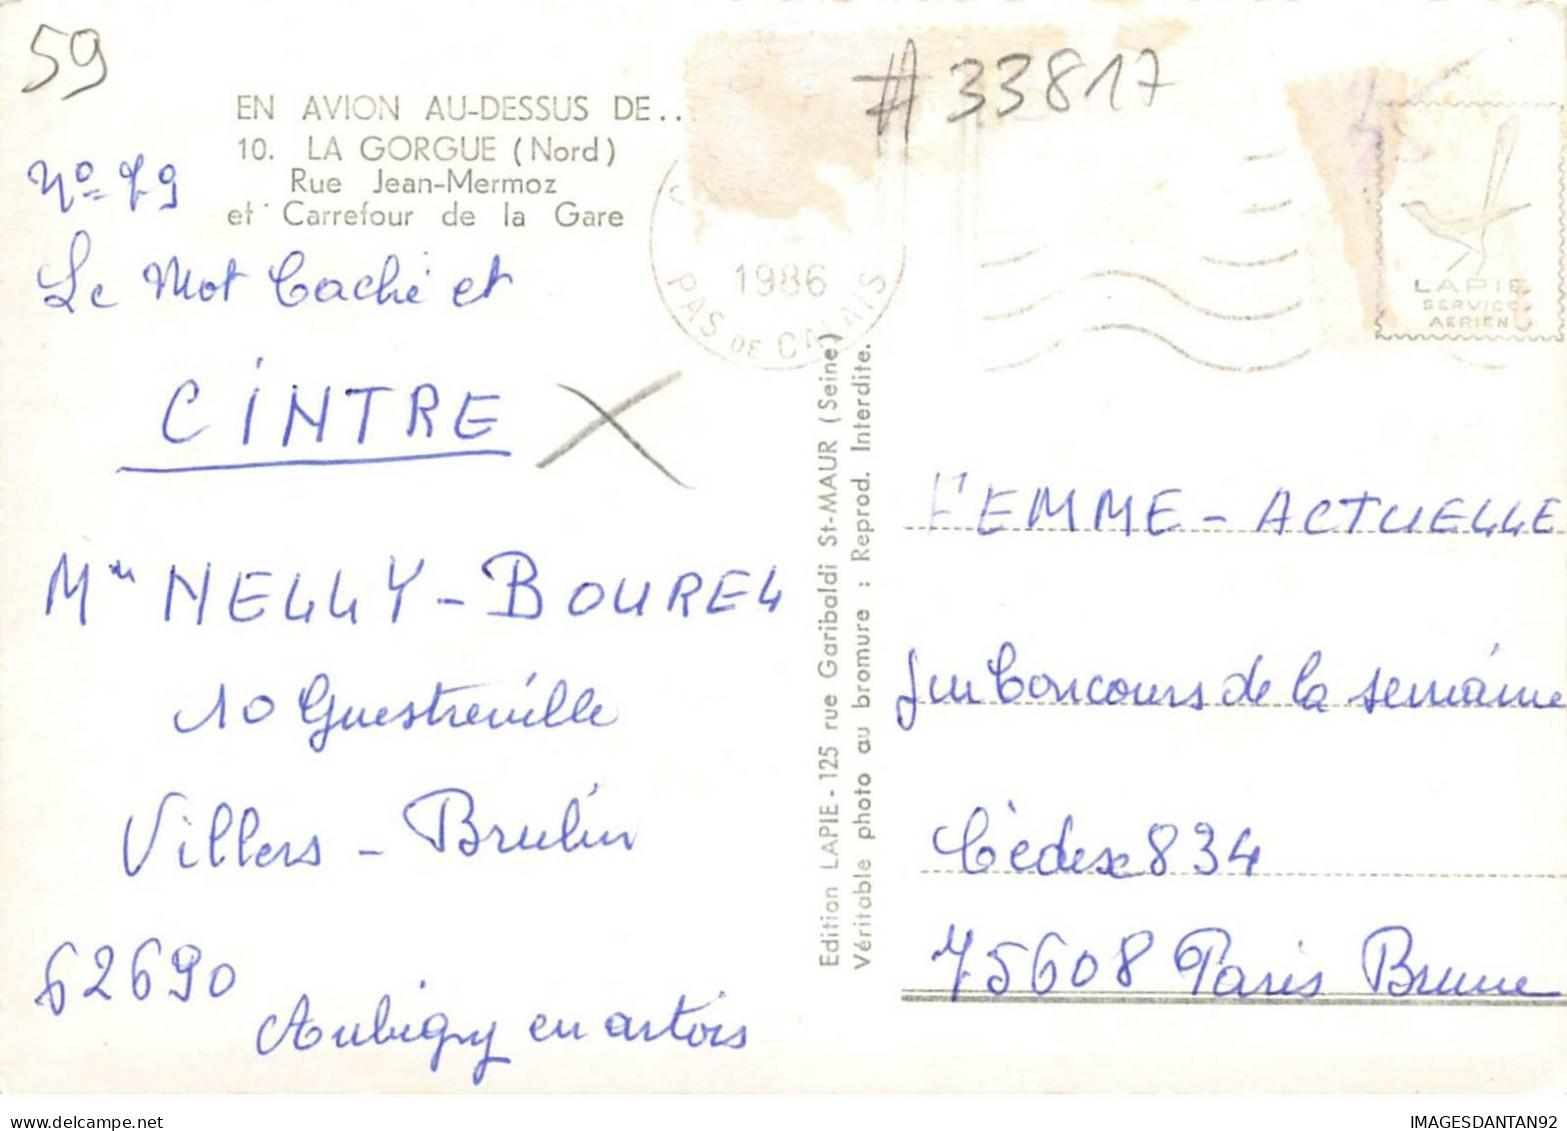 59
# 33817
EN AVION AU-DESSUS DE..
10. LA GORGUE (Nord)
Rue Jean-Mermoz
et Carrefour de la Gare
N° 79
Le Mot Caché et
CINTRE
Mme NELLY - BOUREL
10 Guestreville
Villers - Brulin
62690
Aubigny en artois
1986
PAS DE CALAIS
LAPIE
SERVICE
AERIEN
Edition LAPIE - 125 rue Garibaldi St-MAUR (Seine)
Véritable photo au bromure : Reprod. Interdite.
FEMME - ACTUELLE
Jeu Concours de la semaine
Cèdex 834
75608 Paris Brune
IMAGESDANTAN92